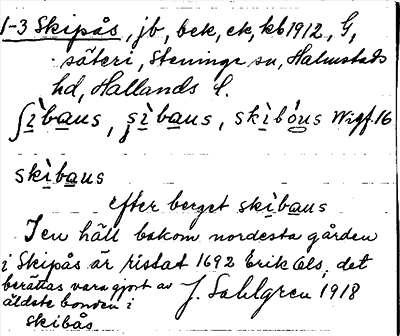 1-3 Skipås, jb, bek, ek, kb 1912, G,
säteri, Steninge sn, Halmstads
hd, Hallands l.
ʃìbaus, ʃìbaus, skìbóus Wigf. 16
skìbaus
efter berget skìbaus
I en häll bakom nordesta gården
i Skipås är ristat 1692 Erik Ols, det
berättas vara gjort av J. Sahlgren 1918
äldste bonden i
skibås